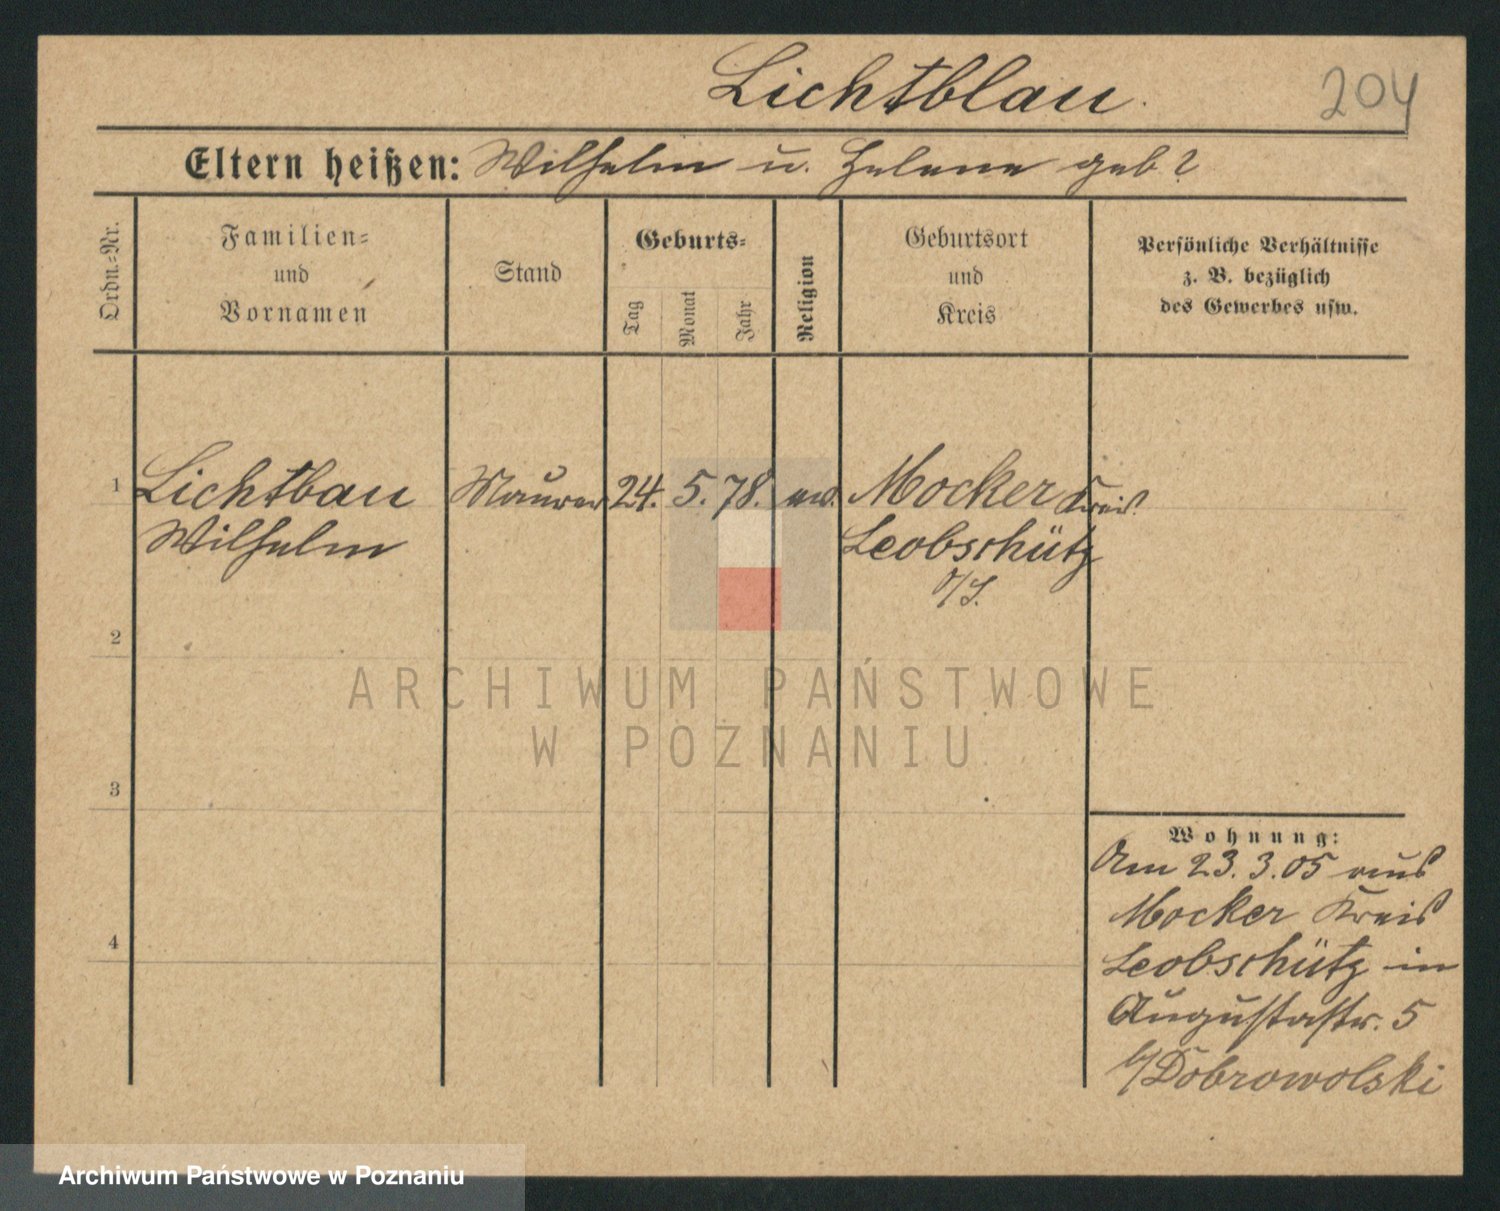 Lichtblau.
204
Eltern heißen: Wilhelm u. Helene geb?
Ordn.=Nr.
Familien=
und
Vornamen
Stand
Geburts=
Tag
Monat
Jahr
Religion
Geburtsort
und
Kreis
Persönliche Verhältnisse
z. B. bezüglich
des Gewerbes usw.
1 Lichtbau Maurer 24. 5. 78. ev. Mocker Kreis
Wilhelm Leobschütz
O/S.
2
3
4
Wohnung:
Am 23. 3. 05 aus
Mocker Kreis
Leobschütz in
Augustastr. 5
b/Dobrowolski
ARCHIWUM PAŃSTWOWE
W POZNANIU
Archiwum Państwowe w Poznaniu